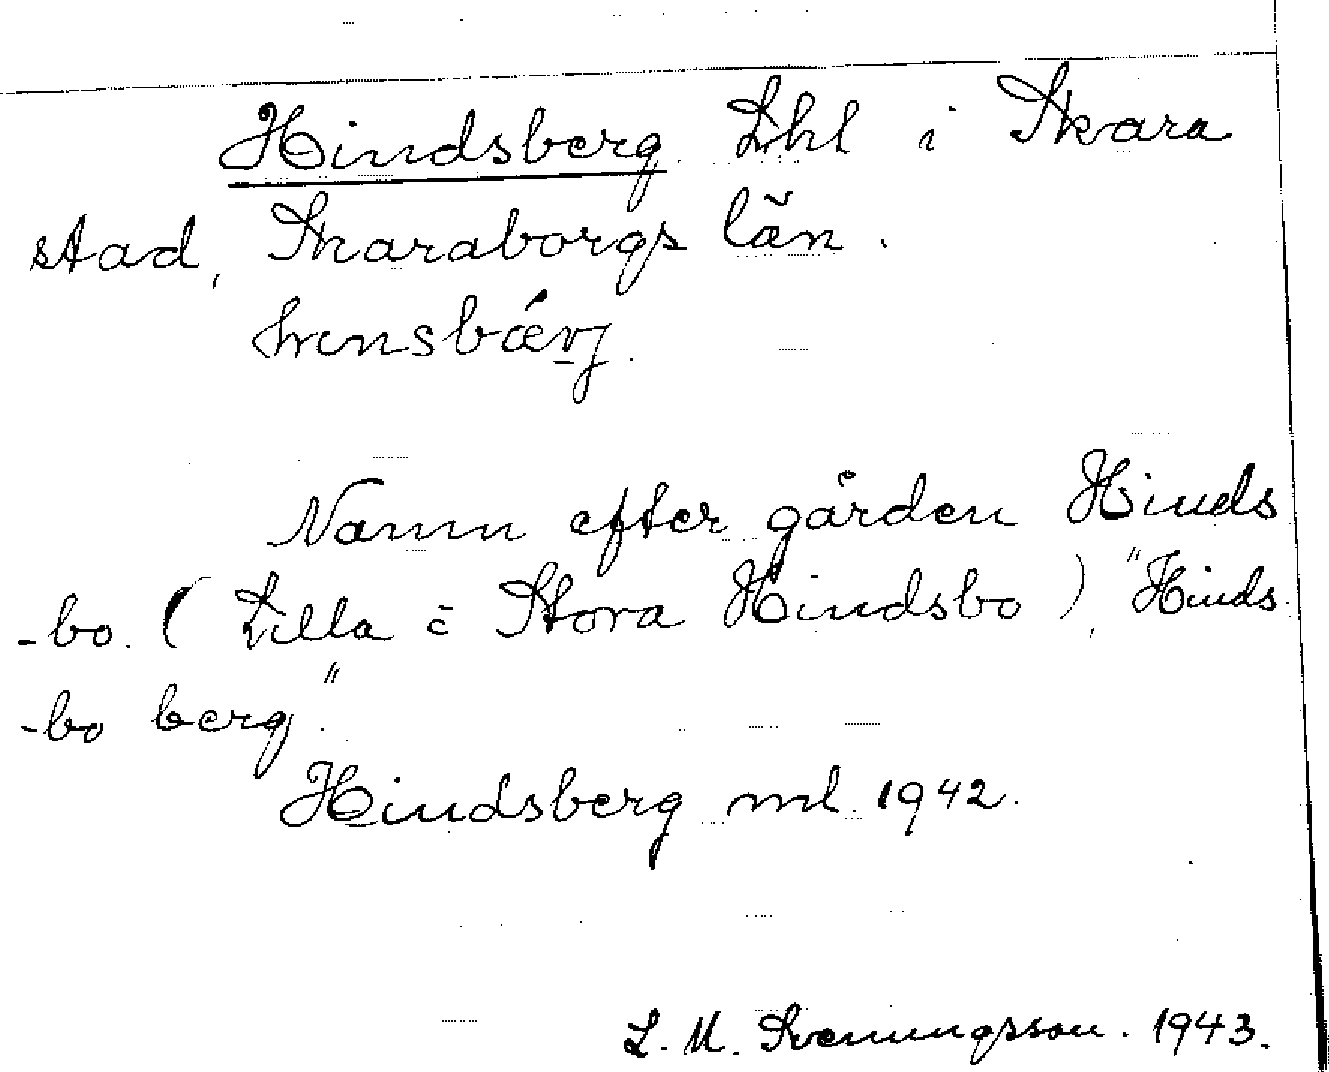 Hindsberg Lhl i Skara
stad, Skaraborgs län.
hensbǽrj.
Namn efter gården Hinds
-bo. (Lilla o Stora Hindsbo), "Hinds
-bo berg".
Hindsberg ml. 1942.
L. M. Svenungsson. 1943.